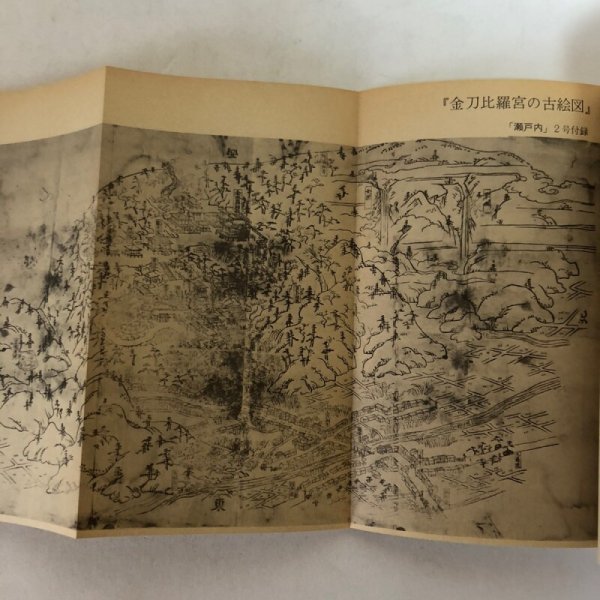 『金刀比羅宮の古絵図』
「瀬戸内」2号付録
東